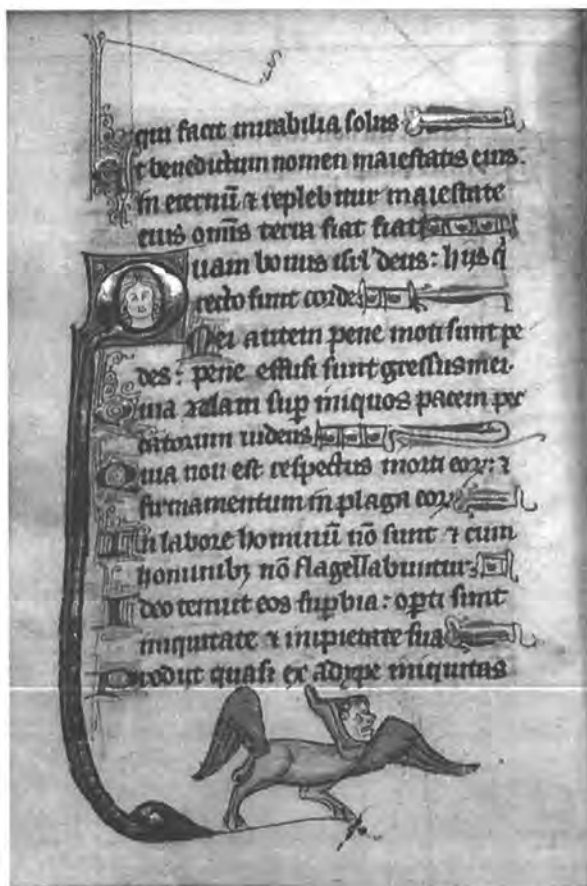 qui facit mirabilia solus
Et benedictum nomen maiestatis eius:
in eternū ⁊ replebitur maiestate
eius om̄is terra fiat fiat
Quam bonus isr̄l deus: hijs q̄
recto sunt corde
Mei autem pene moti sunt pe
des: pene effusi sunt gressus mei.
Quia zelaui sup iniquos pacem pec
catorum uidens
Quia non est respectus morti eor̄: ⁊
firmamentum in plaga eor̄
In labore hominū nō sunt ⁊ cum
hominibȝ nō flagellabuntur
Ideo tenuit eos supbia: opti sunt
iniquitate ⁊ impietate sua
Prodijt quasi ex adype iniquitas